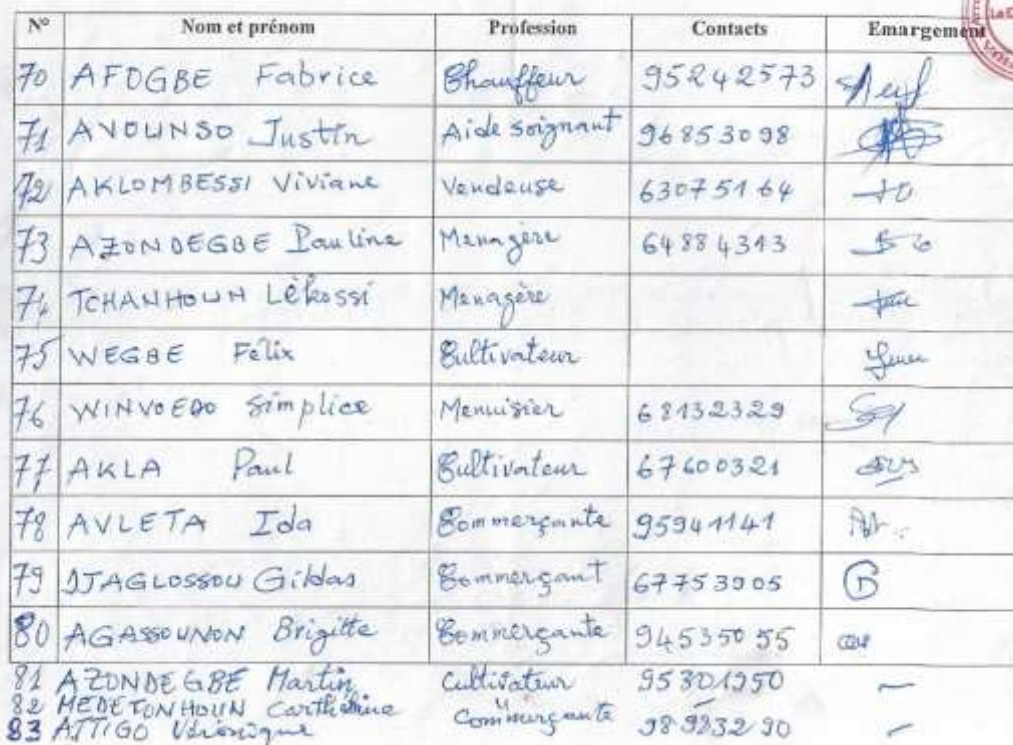 N° Nom et prénom Profession Contacts Emargement
70 AFOGBE Fabrice Chauffeur 95242573
71 AVOUNSO Justin Aide soignant 96853098
72 AKLOMBESSI Viviane Vendeuse 63075164
73 AZONDEGBE Pauline Menagère 64884313
74 TCHANHOUN Lékossi Menagère
75 WEGBE Felix Cultivateur
76 WINVOEDO Simplice Menuisier 68132329
77 AKLA Paul Cultivateur 67600321
78 AVLETA Ida Commerçante 95941141
79 DJAGLOSSOU Gildas Commerçant 67753905
80 AGASSOUNON Brigitte Commerçante 94535055
81 AZONDEGBE Martin Cultivateur 95301950
82 MEDETONHOUN "
83 ATTIGO Véronique Commerçante